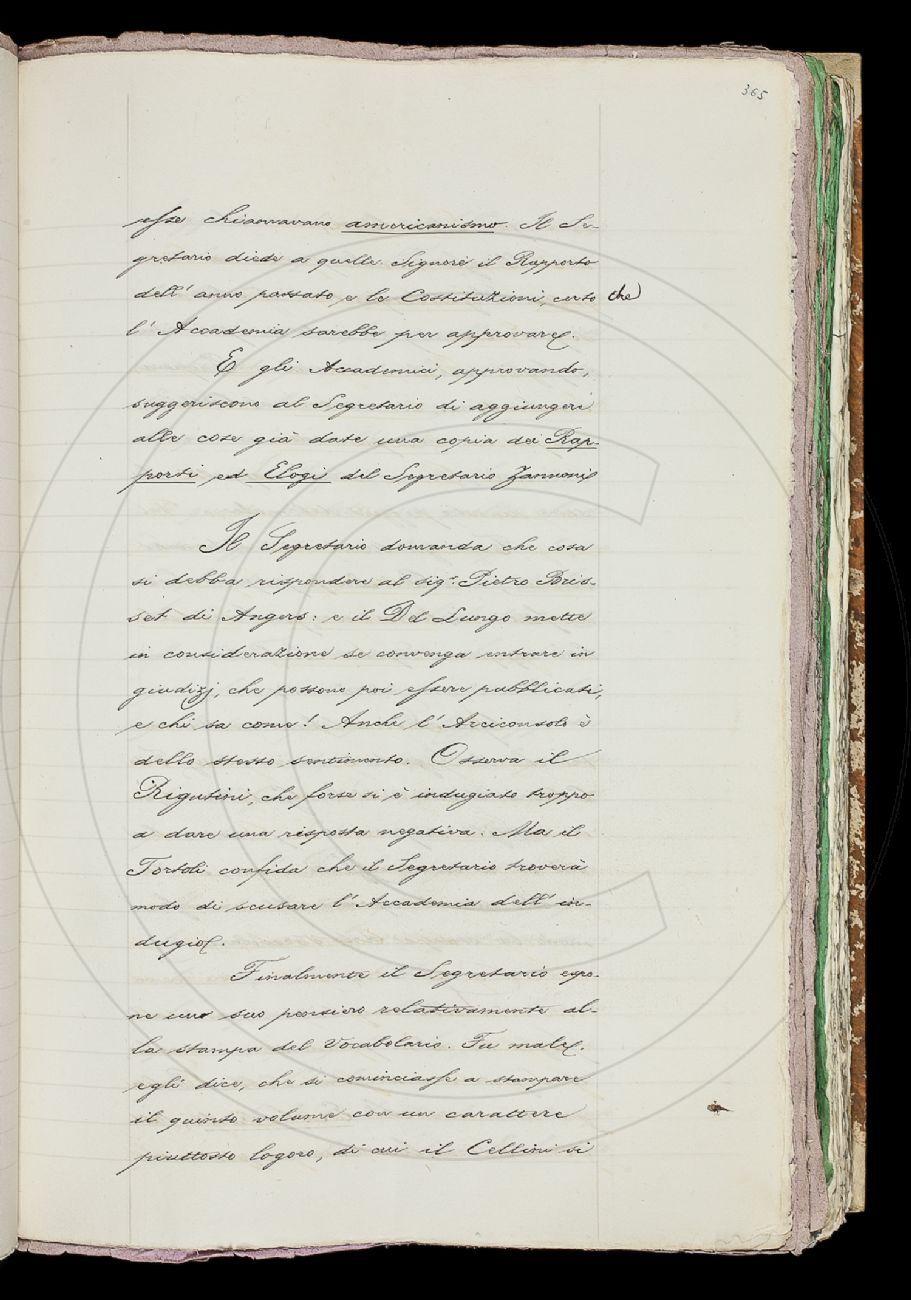 365
esse chiamavano americanismo. Il Se-
gretario diede a quelle Signore il Rapporto
dell' anno passato, e le Costituzioni, certo che
l' Accademia sarebbe per approvare.
E gli Accademici, approvando,
suggeriscono al Segretario di aggiungere
alle cose già date una copia dei Rap-
porti ed Elogi del Segretario Zannoni
Il Segretario domanda che cosa
si debba rispondere al sigr. Pietro Bris-
set di Angers: e il Del Lungo mette
in considerazione se convenga entrare in
giudizj, che possono poi essere pubblicati,
e chi sa come! Anche l' Arciconsolo è
dello stesso sentimento. Osserva il
Rigutini, che forse si è indugiato troppo
a dare una risposta negativa. Ma il
Tortoli confida che il Segretario troverà
modo di scusare l' Accademia dell' in-
dugio.
Finalmente il Segretario espo-
ne uno suo pensiero relativamente al-
la stampa del Vocabolario. Fu male,
egli dice, che si cominciasse a stampare
il quinto volume con un carattere
piuttosto logoro, di cui il Cellini si